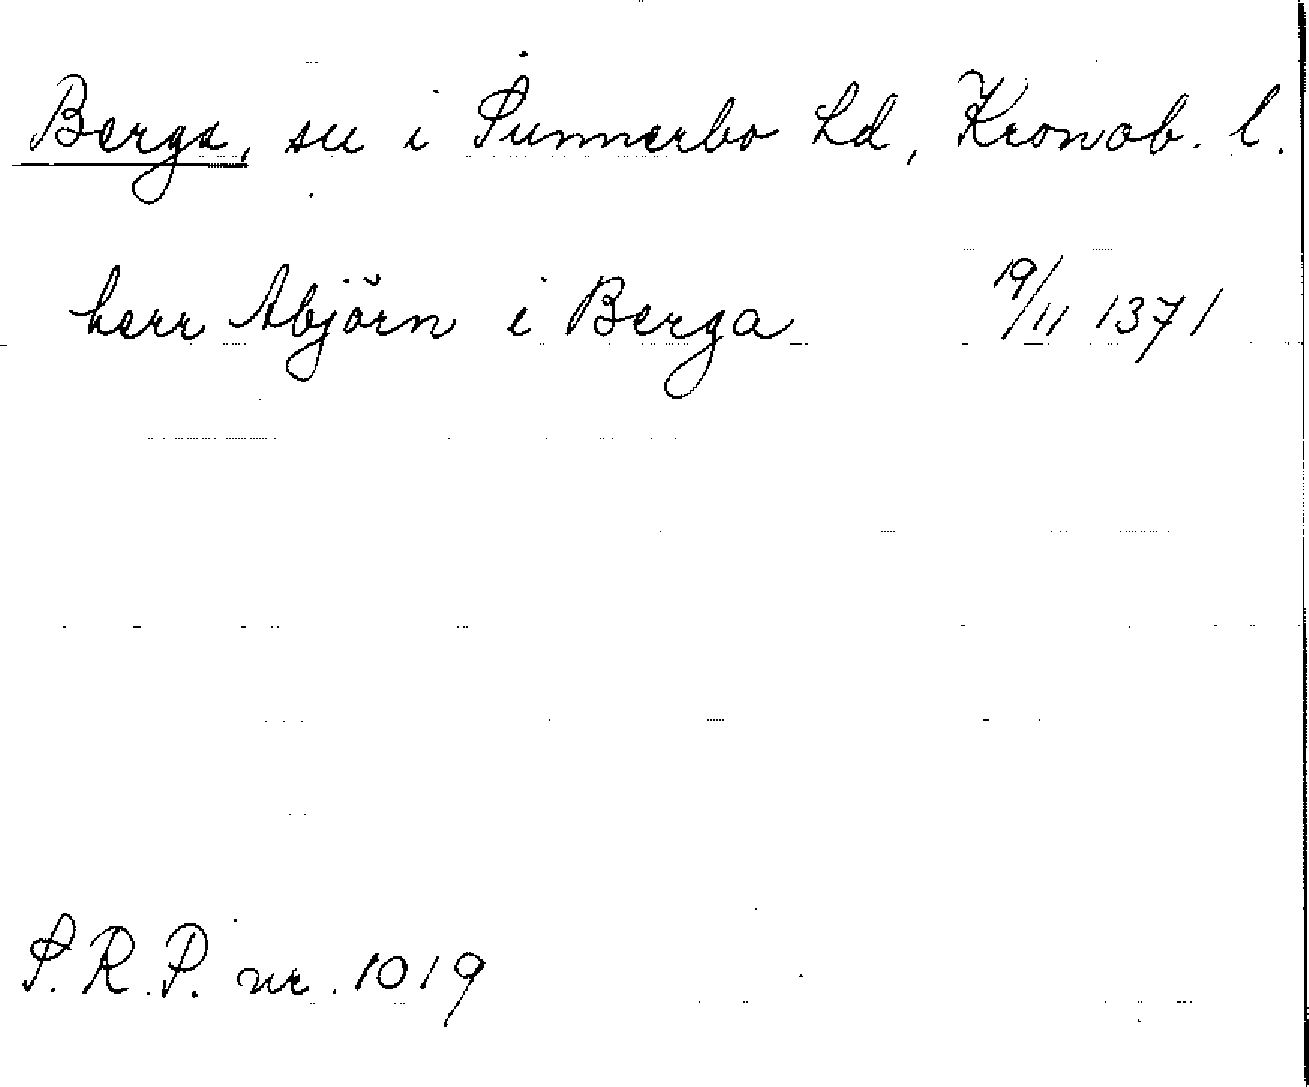 Berga, su i Sunnerbo hd, Kronob. l.
herr Abjörn i Berga 19/11 1371
S.R.P. nr. 1019